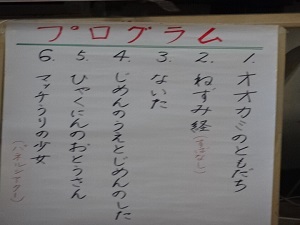 プログラム
1. オオカミのともだち
2. ねずみ経(すばなし)
3. ないた
4. じめんのうえとじめんのした
5. ひゃくにんのおとうさん
6. マッチうりの少女
(パネルシアター)